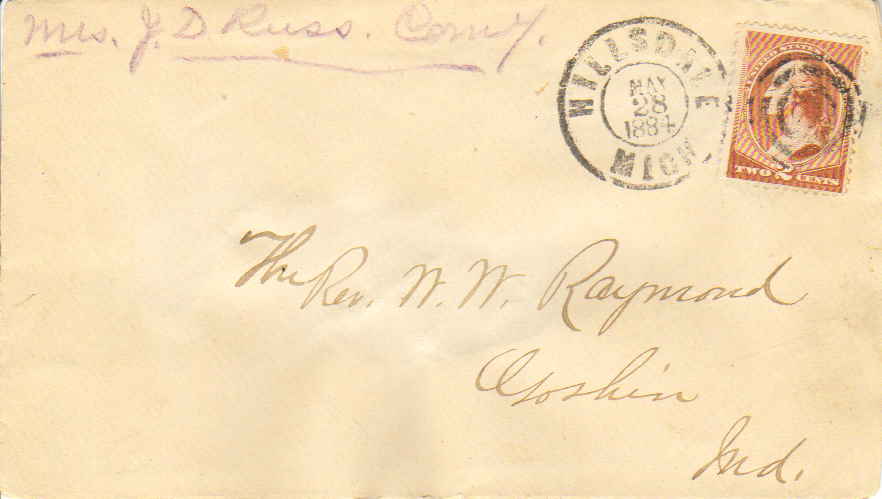 Mrs. J. D Russ.
HILLSDALE
MAY
28
1884
MICH
UNITED STATES
TWO 2 CENTS
The Rev. W. W. Raymond
Goshin
Ind.